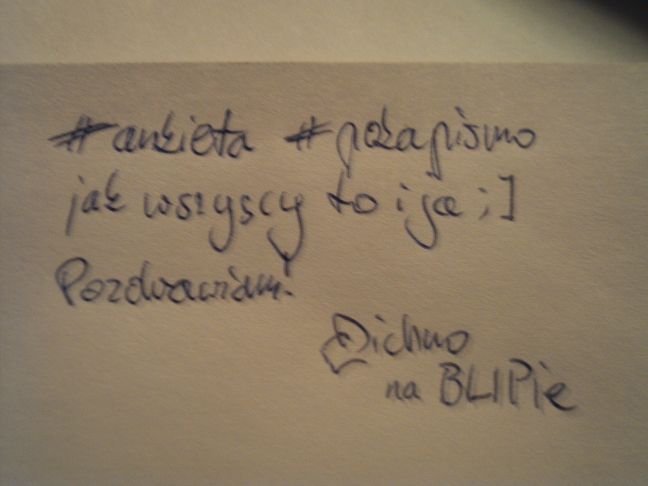 #ankieta #pokapismo
jak wszyscy to i ja ;]
Pozdrawiam!
na BLIPie